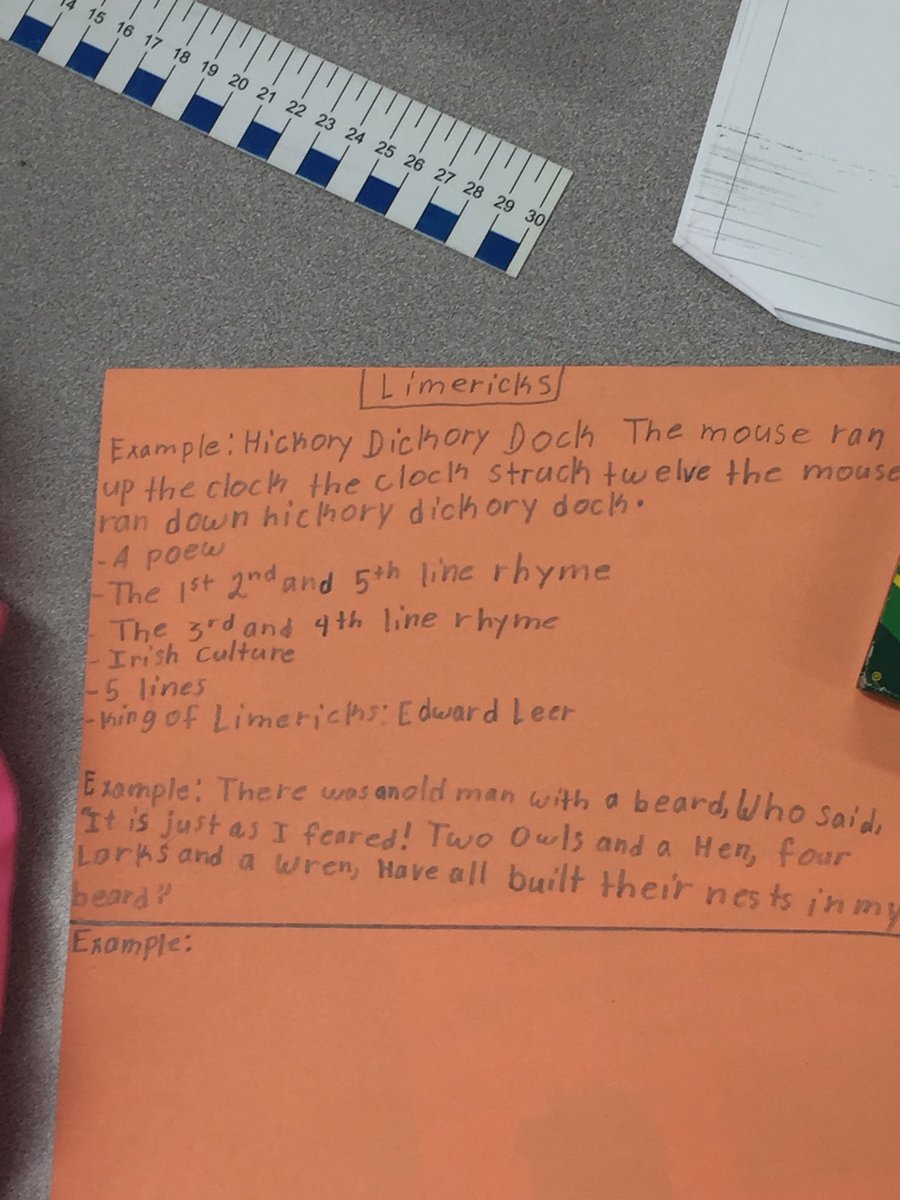 14 15 16 17 18 19 20 21 22 23 24 25 26 27 28 29 30
Limericks
Example: Hickory Dickory Dock The mouse ran
up the clock the clock struck twelve the mouse
ran down hickory dickory dock.
- A poew
- The 1st 2nd and 5th line rhyme
- The 3rd and 4th line rhyme
- Irish Culture
- 5 lines
- King of Limericks: Edward Leer
Example: There was an old man with a beard, Who said,
"It is just as I feared! Two Owls and a Hen, four
Larks and a Wren, Have all built their nests in my
beard"
Example:
®